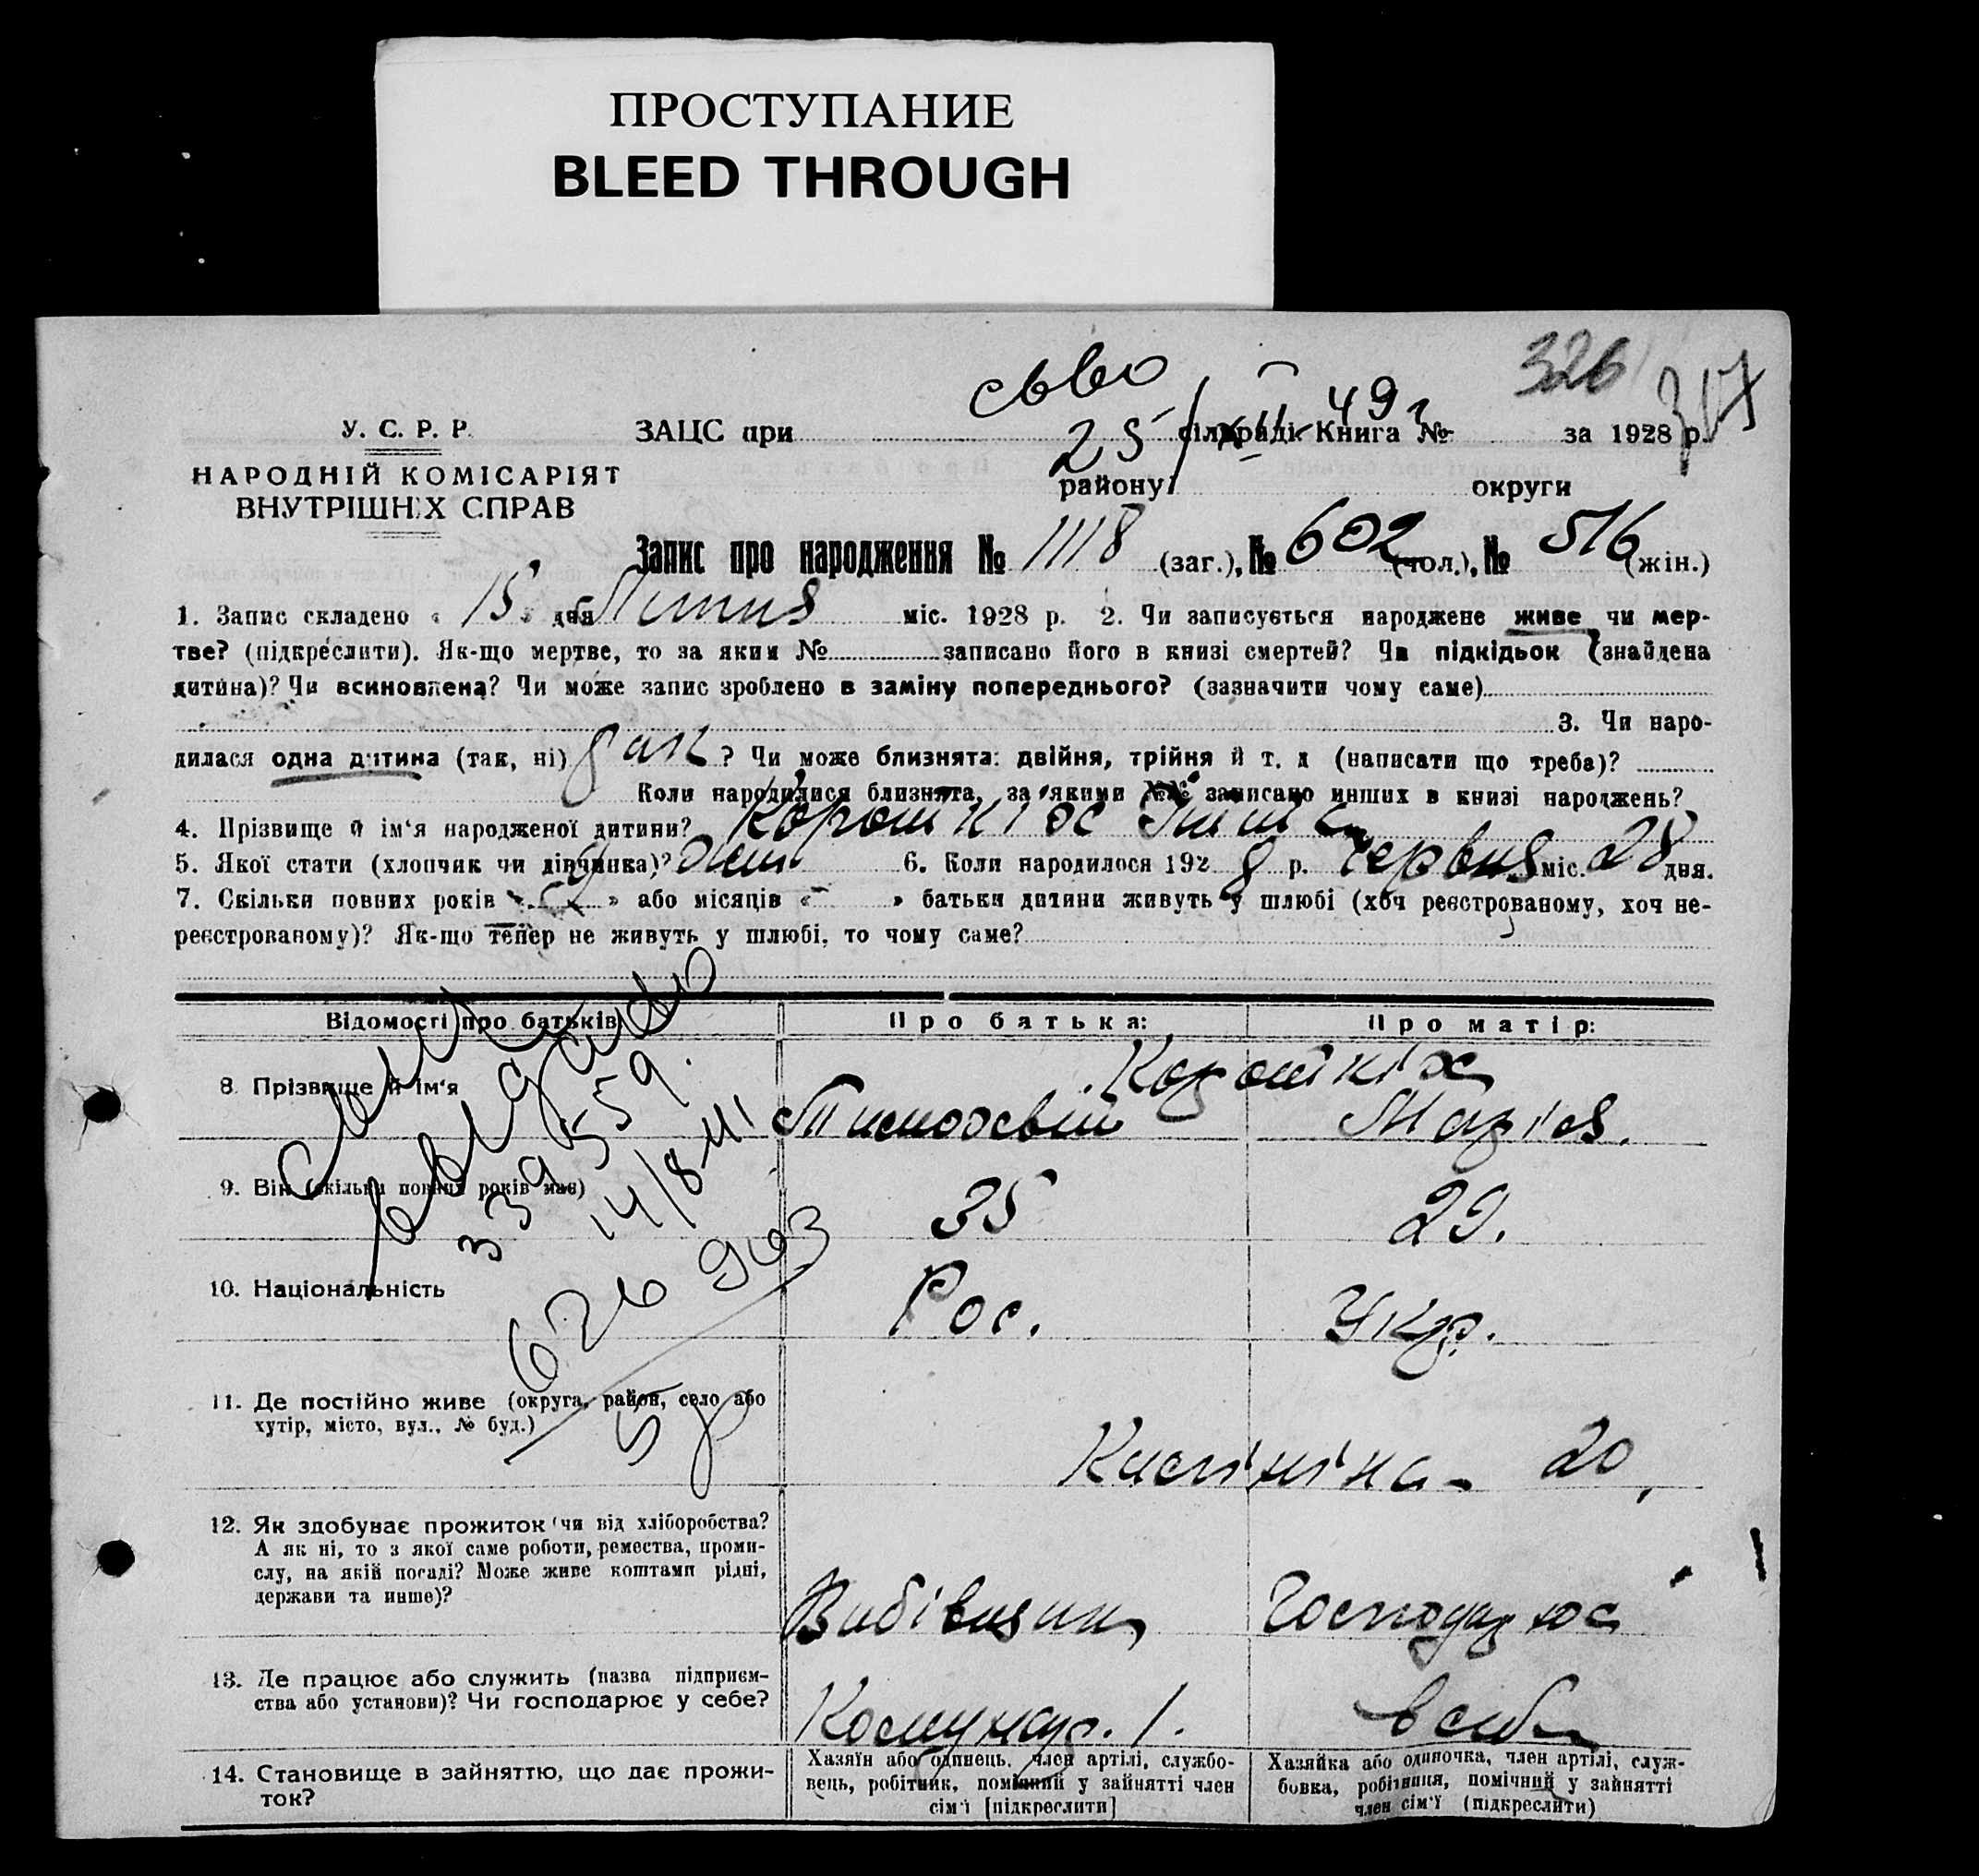 ПРОСТУПАНИЕ
BLEED THROUGH
326
317
св-во
25/XII 49 г
У. С. Р. Р.
НАРОДНІЙ КОМІСАРІЯТ
ВНУТРІШНІХ СПРАВ
ЗАЦС при сільраді. Книга № за 1928 р.
району округи
Запис про народження № 1118 (заг.), № 602 (чол.), № 516 (жін.)
1. Запис складено « 15 » дня Липня міс. 1928 р. 2. Чи записується народжене живе чи мер-
тве? (підкреслити). Як-що мертве, то за яким № записано його в книзі смертей? Чи підкідьок (знайдена
дитина)? Чи всиновлена? Чи може запис зроблено в заміну попереднього? (зазначити чому саме)
3. Чи наро-
дилася одна дитина (так, ні) так ? Чи може близнята: двійня, трійня й т. д (написати що треба)?
Коли народилися близнята, за якими №№ записано инших в книзі народжень?
4. Прізвище й ім'я народженої дитини? Короткіх
5. Якої стати (хлопчик чи дівчинка)? 6. Коли народилося 1928 р. Червня міс. 28 дня.
7. Скільки повних років « » або місяців « - » батьки дитини живуть у шлюбі (хоч реєстрованому, хоч не-
реєстрованому)? Як-що тепер не живуть у шлюбі, то чому саме?
Відомості про батьків Про батька: Про матір:
8. Прізвище й ім'я Короткіх
Тимофвій Марія.
9. Вік (скільки повних років має) 35 29.
10. Національність Рос. Укр.
11. Де постійно живе (округа, район, село або
хутір, місто, вул., № буд.) 20
12. Як здобуває прожиток (чи від хліборобства?
А як ні, то з якої саме роботи, ремества, проми-
слу, на якій посаді? Може живе коштами рідні,
держави та инше)? Вибівщик Господарює
13. Де працює або служить (назва підприєм-
ства або установи)? Чи господарює у себе? Комунар. 1. в себе
14. Становище в зайняттю, що дає прожи-
ток?
Хазяїн або одинець, член артілі, службо-
вець, робітник, помічний у зайнятті член
сім'ї [підкреслити]
Хазяйка або одиночка, член артілі, служ-
бовка, робітниця, помічний у зайнятті
член сім'ї (підкреслити)
выдано
339559.
14/8-
626963
58